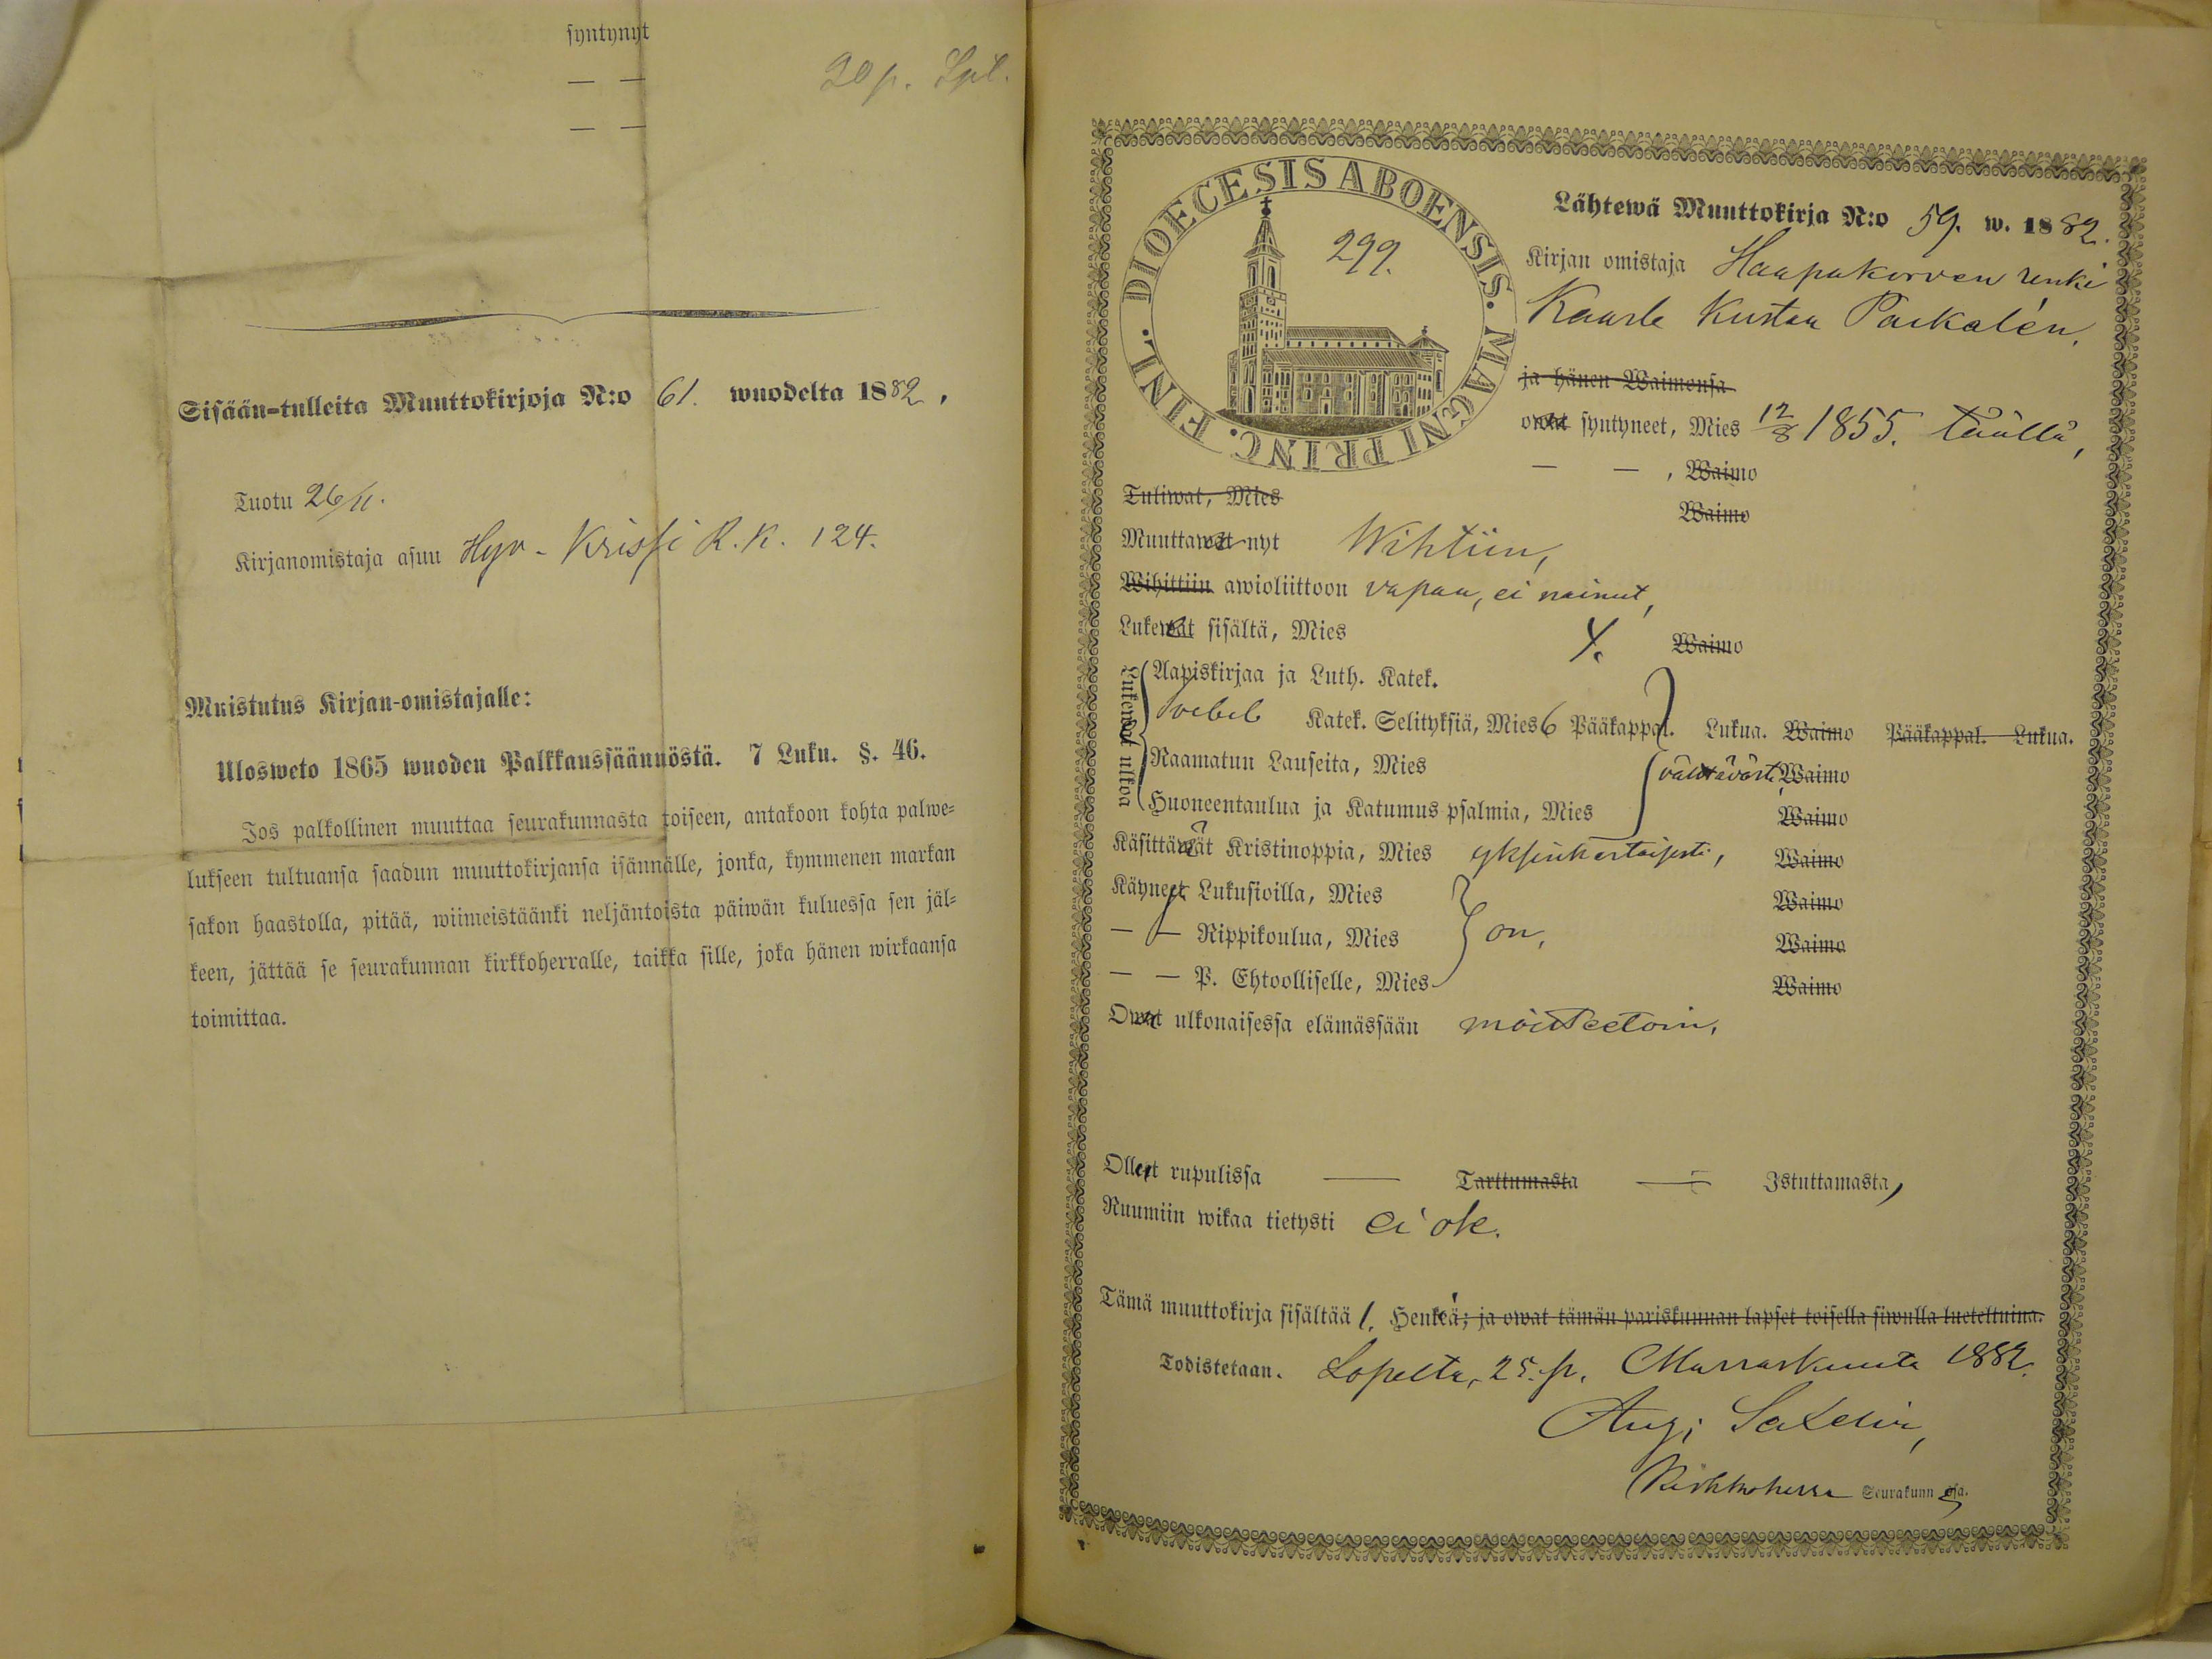 syntynyt
— —
— —
20 p.
Sisään-tulleita Muuttokirjoja N:o 61. wuodelta 1882.
Tuotu 26/11.
Kirjanomistaja asuu Hyv-Krissi R.K. 124.
Muistutus Kirjan-omistajalle:
Ulosweto 1865 wuoden Palkkaussäännöstä. 7 Luku. §. 46.
Jos palkollinen muuttaa seurakunnasta toiseen, antakoon kohta palwe-
lukseen tultuansa saadun muuttokirjansa isännälle, jonka, kymmenen markan
sakon haastolla, pitää, wiimeistäänki neljäntoista päiwän kuluessa sen jäl-
keen, jättää se seurakunnan kirkkoherralle, taikka sille, joka hänen wirkaansa
toimittaa.
DIOECESIS ABOENSIS. MAGNI PRINC. FINL.
299.
Lähtewä Muuttokirja N:o 59. w. 1882.
Kirjan omistaja Haapakorven renki
Kaarle Kustaa Paikalén,
ja hänen Waimonsa
owat syntyneet, Mies 12/8 1855. täällä,
— — , Waimo
Tuliwat, Mies Waimo
Muuttawat nyt Wihtiin,
Wihittiin awioliittoon vapaa, ei nainut,
Lukewat sisältä, Mies Y. Waimo
Lukewat ulkoa
Aapiskirjaa ja Luth. Katek.
Svebel. Katek. Selityksiä, Mies 6 Pääkappal. Lukua. Waimo Pääkappal. Lukua.
Raamatun Lauseita, Mies välttävästi, Waimo
Huoneentaulua ja Katumus psalmia, Mies Waimo
Käsittäwät Kristinoppia, Mies yksinkertaisesti, Waimo
Käyneet Lukusioilla, Mies Waimo
— — Rippikoulua, Mies on, Waimo
— — P. Ehtoolliselle, Mies Waimo
Owat ulkonaisessa elämässään moitteetoin,
Olleet rupulissa — Tarttumasta — Istuttamasta,
Ruumiin wikaa tietysti ei ole.
Tämä muuttokirja sisältää 1. Henkeä; ja owat tämän pariskunnan lapset toisella siwulla lueteltuina.
Todistetaan. Lopelta, 25. p. Marraskuuta 1882.
Aug. Salelin,
Kirkkoherra Seurakunnassa.